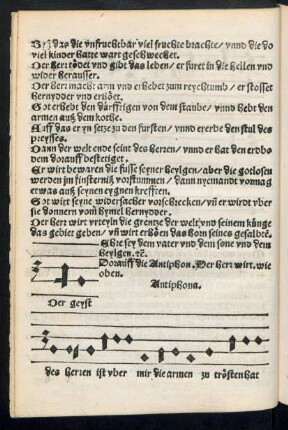 Biß das die vnfruchtbar viel fruchte brachte/ vnnd die do
viel kinder hatte wart geschwechet.
Der herr tödet vnd gibt das leben/ er furet in die hellen vnd
wider herausser.
Der herr macht arm vnd erhebet zum reychtumb/ er stosset
hernydder vnd erhöet.
Got erhebt den dürfftigen von dem staube/ vnnd hebt den
armen auß dem kothe.
Auff das er yn setze zu den fursten/ vnnd ererbe den stul des
preysses.
Dann der welt ende seint des herren/ vnnd er hat den erdbo
dem dorauff bestetiget.
Er wirt bewaren die fusse seyner heylgen/ aber die gotlosen
werden jm finsterniß vorstummen/ dann nyemandt vormag
etwas auß seynen eygnen krefften.
Got wirt seyne widersacher vorschrecken/ vñ er wirdt vber
sie donnern vom hymel hernydder.
Der herr wirt vrteyln die grentze der welt/ vnd seinem künge
das gebiet geben/ vñ wirt erhöen das horn seines gesalbtē.
Ehre sey dem vater vnd dem sone vnd dem
heylgen. ꝛc.
Dorauff die Antiphon. Der herr wirt. wie
oben.
Antiphona.
Der geyst
des herren ist vber mir die armen zu tröstenhat